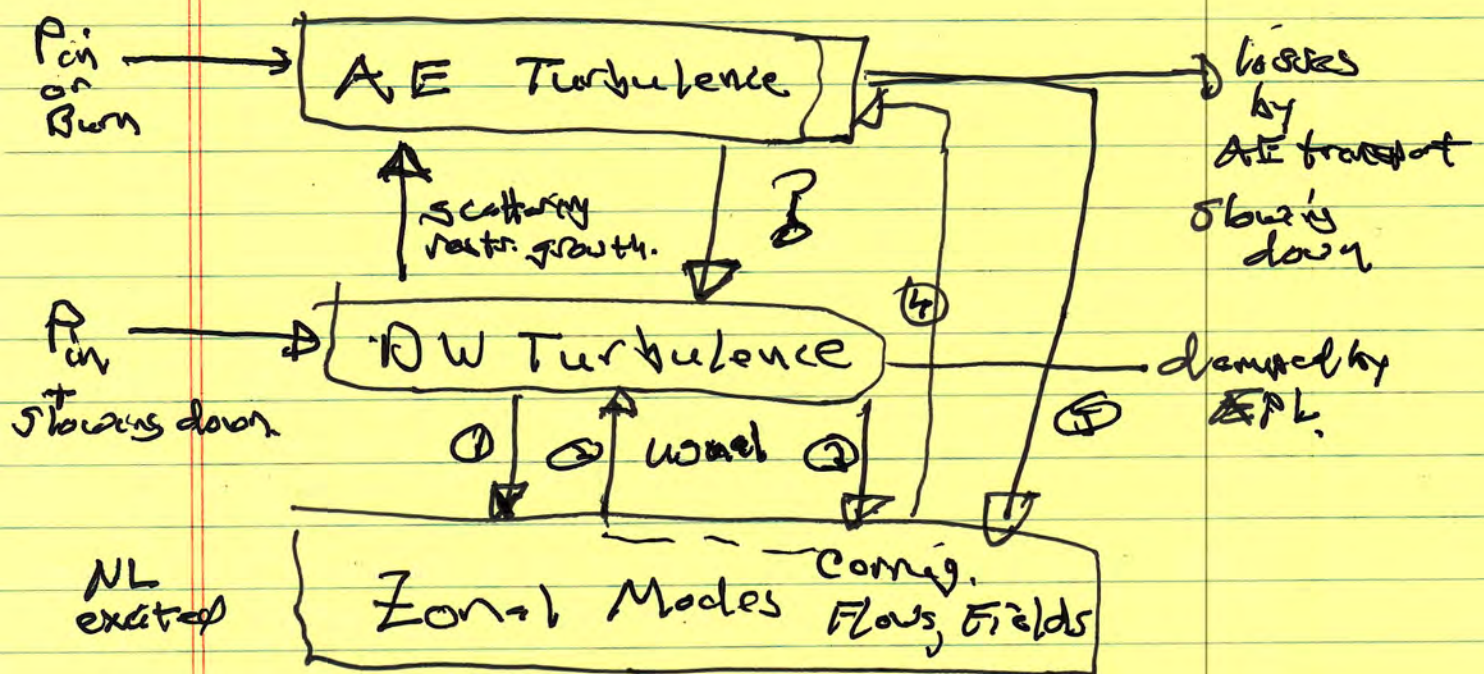 Pin
or
Burn
AE Turbulence
losses
by
AE transport
slowing
down
scattering
restr. growth.
?
④
Pin
+
slowing down
DW Turbulence
damped by
①
②
⑤
NL
excited
Zonal Modes
Flows, Fields